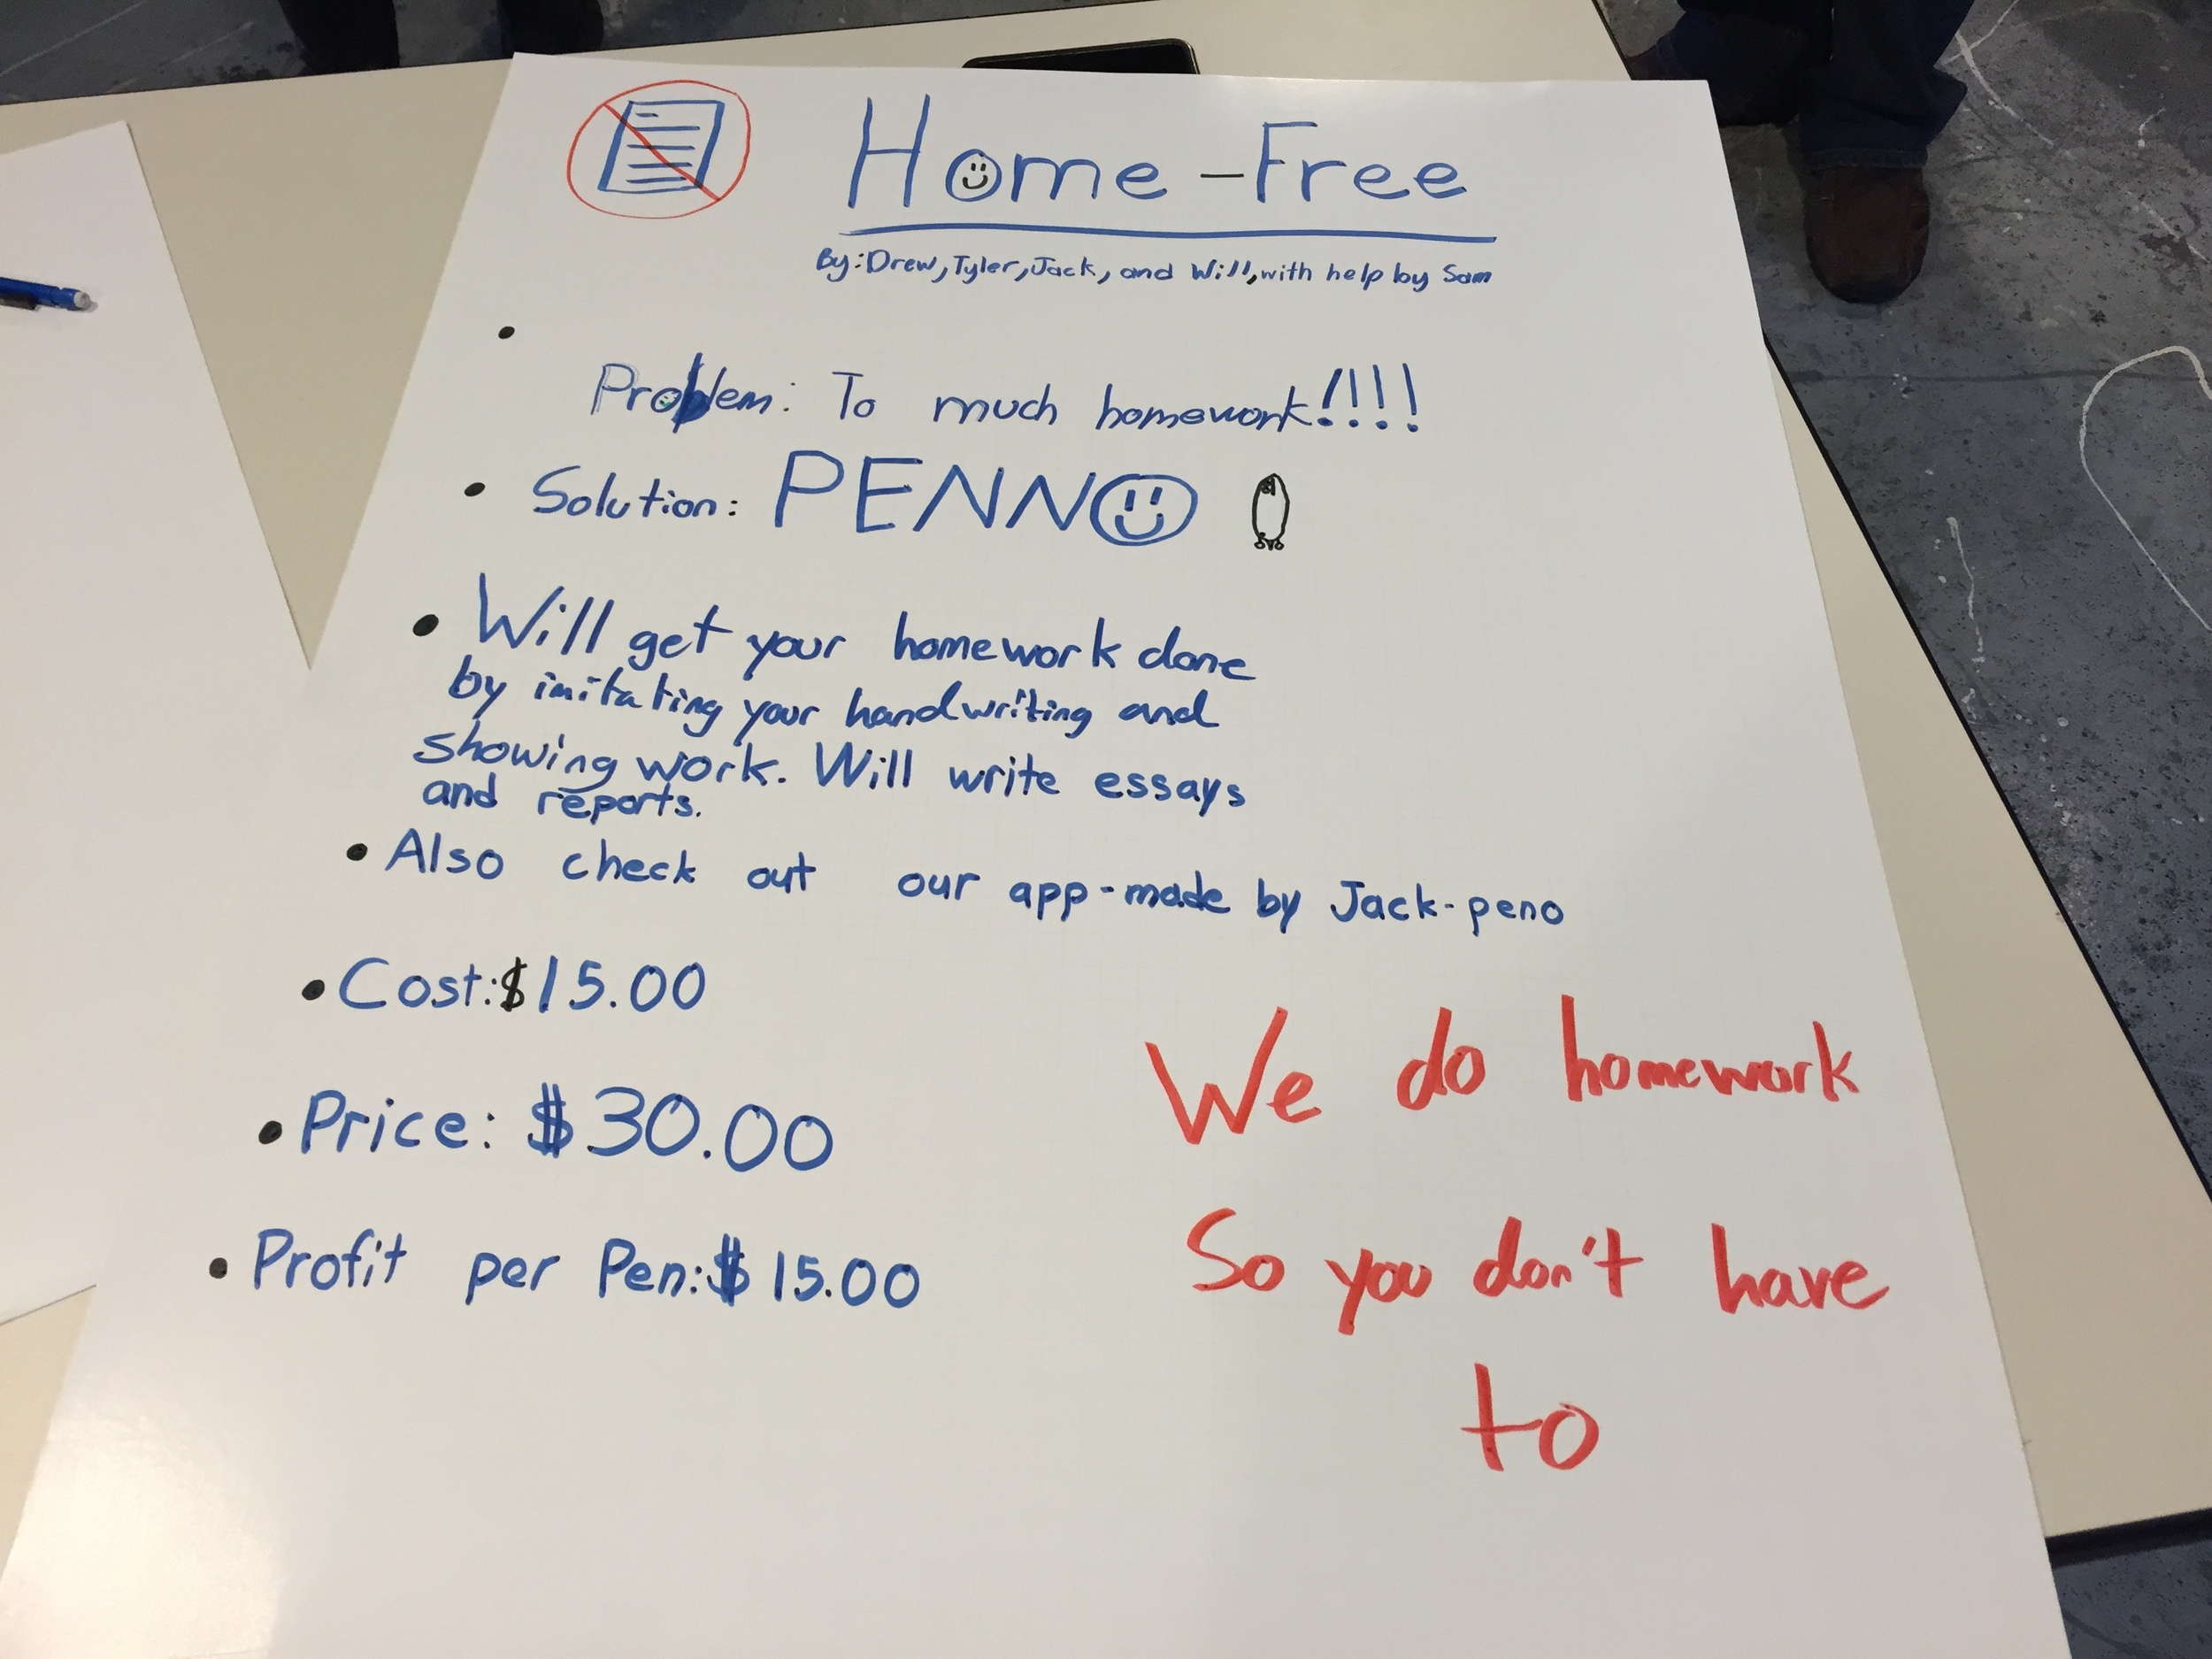 Home-Free
By: Drew, Tyler, Jack, and Will, with help by Sam
• Problem: To much homework!!!!
• Solution: PENNO
• Will get your homework done
by imitating your handwriting and
showing work. Will write essays
and reports.
• Also check out our app-made by Jack-peno
• Cost:$15.00
• Price: $30.00
• Profit per Pen:$15.00
We do homework
So you don't have
to